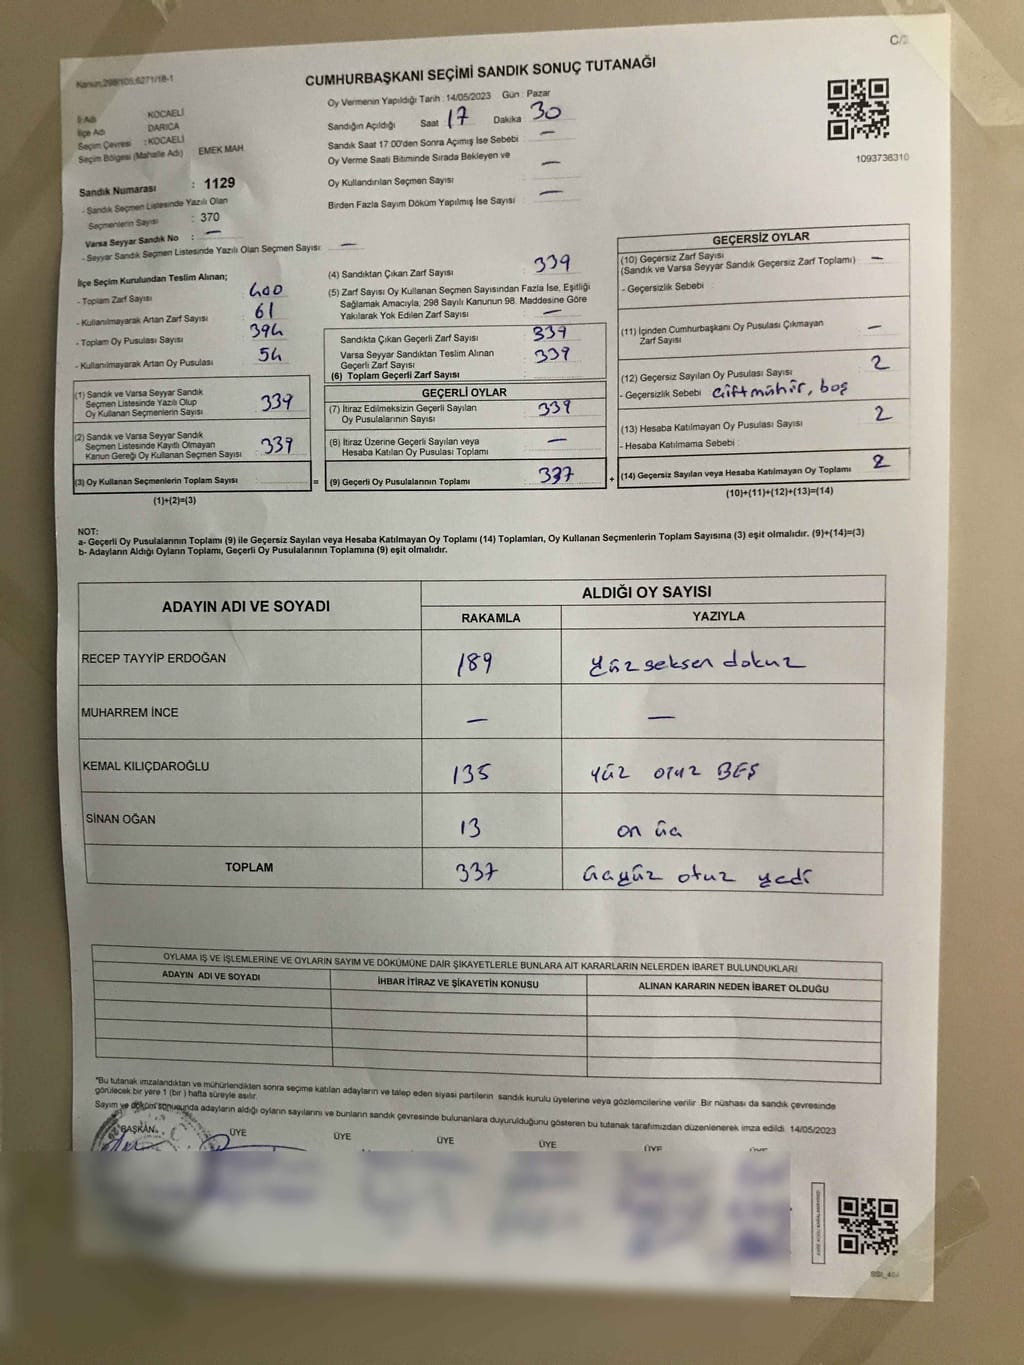 Kanun,298/105,6271/18-1
C/2
CUMHURBAŞKANI SEÇİMİ SANDIK SONUÇ TUTANAĞI
İl Adı KOCAELİ
İlçe Adı DARICA
Seçim Çevresi : KOCAELİ
Seçim Bölgesi (Mahalle Adı) EMEK MAH.
Sandık Numarası : 1129
- Sandık Seçmen Listesinde Yazılı Olan
Seçmenlerin Sayısı : 370
Varsa Seyyar Sandık No : —
- Seyyar Sandık Seçmen Listesinde Yazılı Olan Seçmen Sayısı : —
Oy Vermenin Yapıldığı Tarih : 14/05/2023 Gün : Pazar
Sandığın Açıldığı Saat 17 Dakika 30
Sandık Saat 17:00'den Sonra Açımış İse Sebebi : —
Oy Verme Saati Bitiminde Sırada Bekleyen ve
Oy Kullandırılan Seçmen Sayısı : —
Birden Fazla Sayım Döküm Yapılmış İse Sayısı : —
1093736310
İlçe Seçim Kurulundan Teslim Alınan;
- Toplam Zarf Sayısı 400
- Kullanılmayarak Artan Zarf Sayısı : 61
- Toplam Oy Pusulası Sayısı : 394
- Kullanılmayarak Artan Oy Pusulası : 54
(1) Sandık ve Varsa Seyyar Sandık
Seçmen Listesinde Yazılı Olup
Oy Kullanan Seçmenlerin Sayısı : 339
(2) Sandık ve Varsa Seyyar Sandık
Seçmen Listesinde Kayıtlı Olmayan
Kanun Gereği Oy Kullanan Seçmen Sayısı : 339
(3) Oy Kullanan Seçmenlerin Toplam Sayısı =
(1)+(2)=(3)
(4) Sandıktan Çıkan Zarf Sayısı : 339
(5) Zarf Sayısı Oy Kullanan Seçmen Sayısından Fazla İse, Eşitliği
Sağlamak Amacıyla, 298 Sayılı Kanunun 98. Maddesine Göre
Yakılarak Yok Edilen Zarf Sayısı : —
Sandıkta Çıkan Geçerli Zarf Sayısı : 339
Varsa Seyyar Sandıktan Teslim Alınan
Geçerli Zarf Sayısı : 339
(6) Toplam Geçerli Zarf Sayısı
GEÇERLİ OYLAR
(7) İtiraz Edilmeksizin Geçerli Sayılan
Oy Pusulalarının Sayısı : 339
(8) İtiraz Üzerine Geçerli Sayılan veya
Hesaba Katılan Oy Pusulası Toplamı : —
(9) Geçerli Oy Pusulalarının Toplamı : 337 +
GEÇERSİZ OYLAR
(10) Geçersiz Zarf Sayısı
(Sandık ve Varsa Seyyar Sandık Geçersiz Zarf Toplamı) : —
- Geçersizlik Sebebi :
(11) İçinden Cumhurbaşkanı Oy Pusulası Çıkmayan
Zarf Sayısı : —
(12) Geçersiz Sayılan Oy Pusulası Sayısı : 2
- Geçersizlik Sebebi : Çift mühür, boş
(13) Hesaba Katılmayan Oy Pusulası Sayısı : 2
- Hesaba Katılmama Sebebi :
(14) Geçersiz Sayılan veya Hesaba Katılmayan Oy Toplamı : 2
(10)+(11)+(12)+(13)=(14)
NOT:
a- Geçerli Oy Pusulalarının Toplamı (9) ile Geçersiz Sayılan veya Hesaba Katılmayan Oy Toplamı (14) Toplamları, Oy Kullanan Seçmenlerin Toplam Sayısına (3) eşit olmalıdır. (9)+(14)=(3)
b- Adayların Aldığı Oyların Toplamı, Geçerli Oy Pusulalarının Toplamına (9) eşit olmalıdır.
ADAYIN ADI VE SOYADI ALDIĞI OY SAYISI
RAKAMLA YAZIYLA
RECEP TAYYİP ERDOĞAN 189 yüz seksen dokuz
MUHARREM İNCE — —
KEMAL KILIÇDAROĞLU 135 yüz otuz BEŞ
SİNAN OĞAN 13 on üç
TOPLAM 337 üçyüz otuz yedi
OYLAMA İŞ VE İŞLEMLERİNE VE OYLARIN SAYIM VE DÖKÜMÜNE DAİR ŞİKAYETLERLE BUNLARA AİT KARARLARIN NELERDEN İBARET BULUNDUKLARI
ADAYIN ADI VE SOYADI İHBAR İTİRAZ VE ŞİKAYETİN KONUSU ALINAN KARARIN NEDEN İBARET OLDUĞU
*Bu tutanak imzalandıktan ve mühürlendikten sonra seçime katılan adayların ve talep eden siyasi partilerin sandık kurulu üyelerine veya gözlemcilerine verilir. Bir nüshası da sandık çevresinde
görülecek bir yere 1 (bir) hafta süreyle asılır.
Sayım ve döküm sonucunda adayların aldığı oyların sayılarını ve bunların sandık çevresinde bulunanlara duyurulduğunu gösteren bu tutanak tarafımızdan düzenlenerek imza edildi. 14/05/2023
BAŞKAN ÜYE ÜYE ÜYE ÜYE ÜYE ÜYE